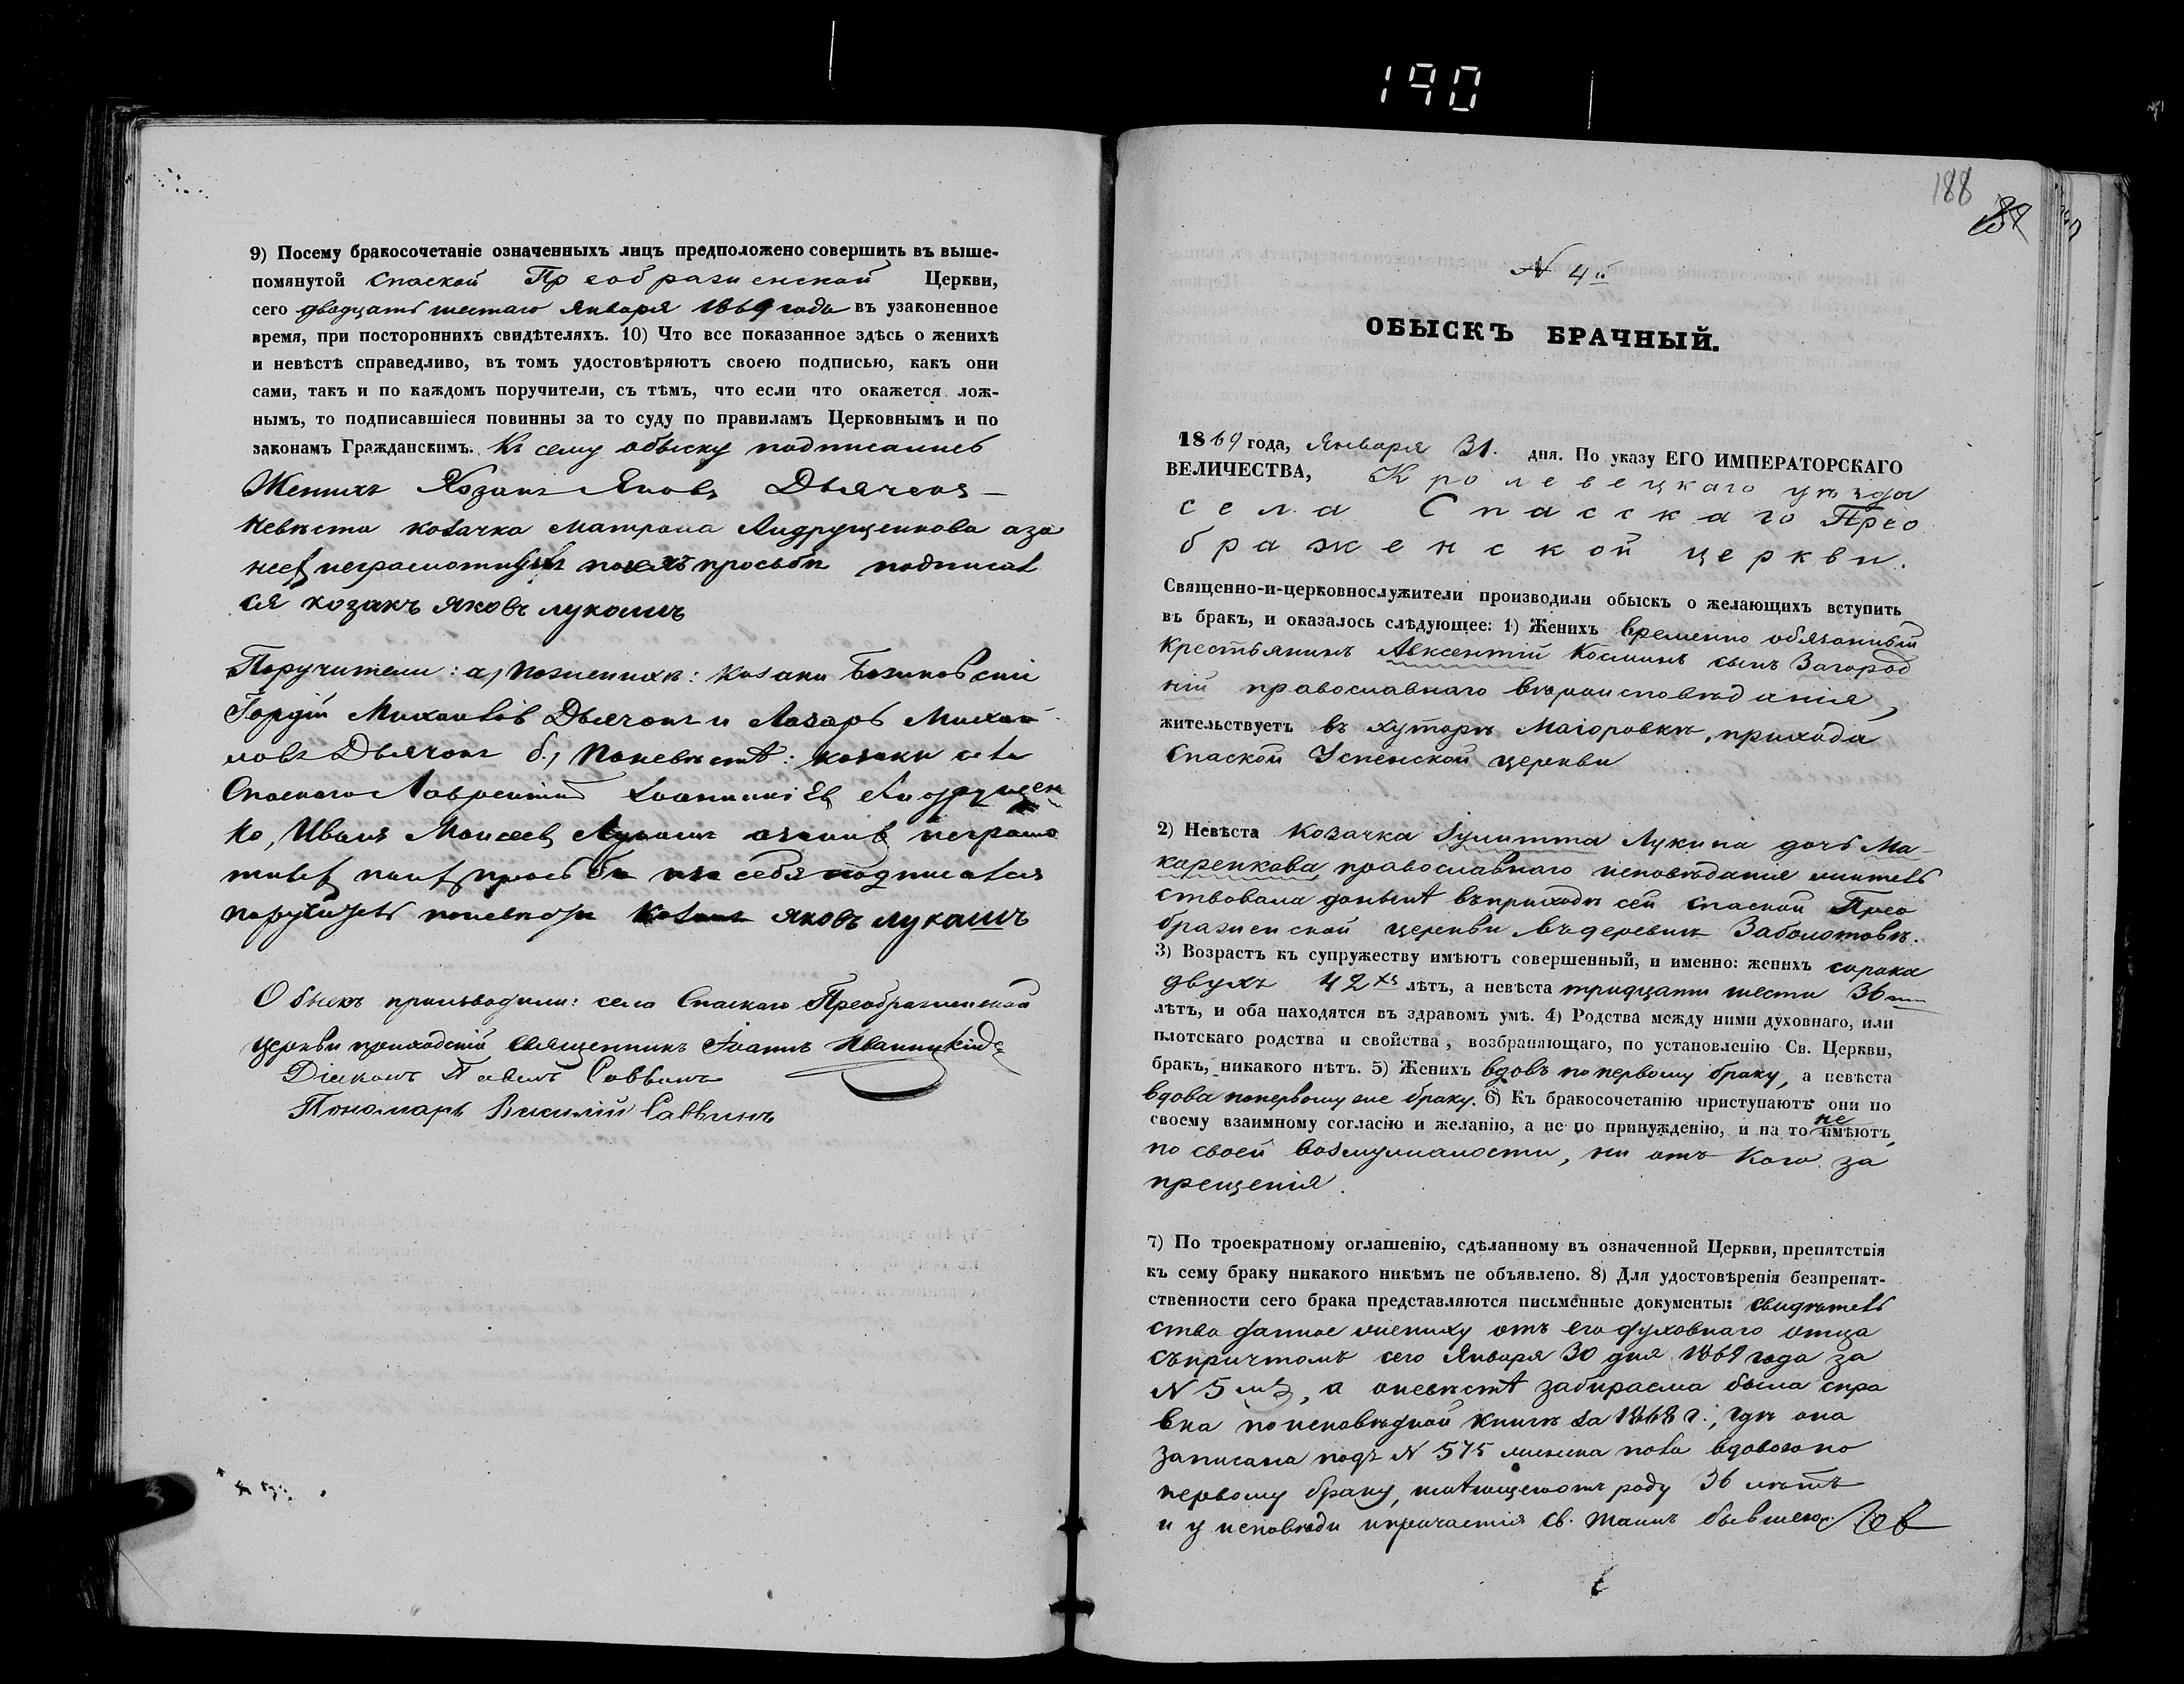 190
9) Посему бракосочетаніе означенныхъ лицъ предположено совершить въ выше-
помянутой Спаской Преображенской Церкви,
сего двадцать шестаго Января 1869 года въ узаконенное
время, при постороннихъ свидѣтеляхъ. 10) Что все показанное здѣсь о женихѣ
и невѣстѣ справедливо, въ томъ удостовѣряютъ своею подписью, какъ они
сами, такъ и по каждомъ поручители, съ тѣмъ, что если что окажется лож-
нымъ, то подписавшіеся повинны за то суду по правиламъ Церковнымъ и по
законамъ Гражданскимъ. Къ сему обыску подписались
Женихъ Козакъ Яковъ Дьячокъ
Невѣста козачка Матрона Андрущенкова а за
нее неграмотную по ея просьбѣ подписал
ся козакъ Яковъ Лукашъ
Поручители: а, по женихѣ: козаки
Гордій Михаиловъ Дьячокъ и Лазарь Михай
ловъ Дьячокъ б., по невѣстѣ: козаки села
Спаскаго Лаврентій Андрущен
ко, Иванъ Моисеев Лукашъ а за нихъ неграмо
тныхъ по их просьбѣ и за себя подписался
поручитель по невѣстѣ козакъ Яковъ Лукашъ
Обыскъ производили: села Спаскаго Преображенской
церкви приходскій Священникъ Іоаннъ
Діаконъ Павелъ Саввинъ
Пономарь Василій Саввинъ
188
N 4й
ОБЫСКЪ БРАЧНЫЙ.
1869 года, Января 31. дня. По указу ЕГО ИМПЕРАТОРСКАГО
ВЕЛИЧЕСТВА, Кролевецкаго уѣзда
села Спасскаго Прео
браженской церкви.
Священно-и-церковнослужители производили обыскъ о желающихъ вступить
въ бракъ, и оказалось слѣдующее: 1) Женихъ временно обязанный
крестьянинъ Авксентій Косминъ сынъ Загород
ній православнаго вѣроисповѣданія,
жительствуетъ въ хуторѣ Маіоровкѣ, прихода
Спаской Успенской церкви
2) Невѣста Козачка Іулитта Лукина дочь Ма-
каренкова, православнаго исповѣданія житель
ствовала донынѣ въ приходѣ сей Спаской Прео
браженской церкви въ деревнѣ Заболотовѣ.
3) Возрастъ къ супружеству имѣютъ совершенный, и именно: женихъ сорока
двухъ 42хъ лѣтъ, а невѣста тридцати шести 36ти
лѣтъ, и оба находятся въ здравомъ умѣ. 4) Родства между ними духовнаго, или
плотскаго родства и свойства, возбраняющаго, по установленію Св. Церкви,
бракъ, никакого нѣтъ. 5) Женихъ вдовъ по первому браку, а невѣста
вдова по первому же браку. 6) Къ бракосочетанію приступаютъ они по
своему взаимному согласію и желанію, а не по принужденію, и на то не имѣютъ,
по своей возмужалости, ни отъ кого за
прещенія.
7) По троекратному оглашенію, сдѣланному въ означенной Церкви, препятствія
къ сему браку никакого никѣмъ не объявлено. 8) Для удостовѣренія безпрепят-
ственности сего брака представляются письменные документы: свидѣтель
ство данное жениху отъ его духовнаго отца
съ причтомъ сего Января 30 дня 1869 года за
N 5 мъ, а о невѣстѣ забираема была спра
вка по исповѣдной книгѣ за 1868 г., гдѣ она
записана подъ N 575 женска пола вдовою по
первому браку, имѣющею отъ роду 36 лѣтъ
и у исповѣди и причастія св. таинъ бывшею.